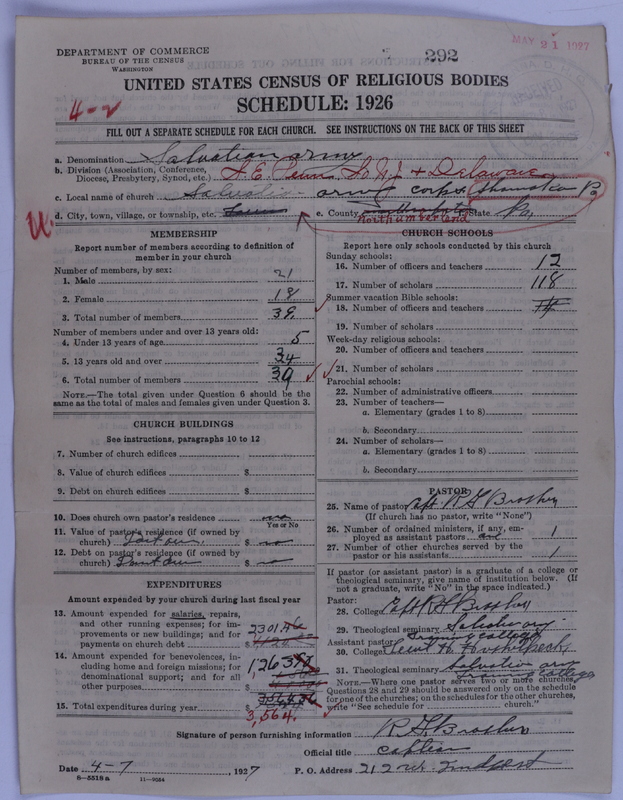 DEPARTMENT OF COMMERCE
BUREAU OF THE CENSUS
WASHINGTON
292
MAY 21 1927
RECEIVED
UNITED STATES CENSUS OF RELIGIOUS BODIES
SCHEDULE: 1926
4-2
FILL OUT A SEPARATE SCHEDULE FOR EACH CHURCH. SEE INSTRUCTIONS ON THE BACK OF THIS SHEET
a. Denomination Salvation army
b. Division (Association, Conference, Diocese, Presbytery, Synod, etc.) E. Penn. So. N.J. + Delaware
c. Local name of church Salvation army corps Shamokin Pa
d. City, town, village, or township, etc. e. County Northumberland State Pa,
MEMBERSHIP
Report number of members according to definition of
member in your church
Number of members, by sex:
1. Male 21
2. Female 18
3. Total number of members 39
Number of members under and over 13 years old:
4. Under 13 years of age 5
5. 13 years old and over 34
6. Total number of members 39
NOTE.—The total given under Question 6 should be the
same as the total of males and females given under Question 3.
CHURCH BUILDINGS
See instructions, paragraphs 10 to 12
7. Number of church edifices
8. Value of church edifices $
9. Debt on church edifices $
10. Does church own pastor's residence no
Yes or No
11. Value of pastor's residence (if owned by
church) $ no
12. Debt on pastor's residence (if owned by
church) $ no
EXPENDITURES
Amount expended by your church during last fiscal year
13. Amount expended for salaries, repairs,
and other running expenses; for im-
provements or new buildings; and for
payments on church debt $ 2301
14. Amount expended for benevolences, in-
cluding home and foreign missions; for
denominational support; and for all
other purposes $ 1,263
15. Total expenditures during year $
3,564.
CHURCH SCHOOLS
Report here only schools conducted by this church
Sunday schools:
16. Number of officers and teachers 12
17. Number of scholars 118
Summer vacation Bible schools:
18. Number of officers and teachers
19. Number of scholars
Week-day religious schools:
20. Number of officers and teachers
21. Number of scholars
Parochial schools:
22. Number of administrative officers
23. Number of teachers—
a. Elementary (grades 1 to 8)
b. Secondary
24. Number of scholars—
a. Elementary (grades 1 to 8)
b. Secondary
PASTOR
25. Name of pastor Capt R G
(If church has no pastor, write "None")
26. Number of ordained ministers, if any, em-
ployed as assistant pastors one 1
27. Number of other churches served by the
pastor or his assistants 1
If pastor (or assistant pastor) is a graduate of a college or
theological seminary, give name of institution below. (If
not a graduate, write "No" in the space indicated.)
Pastor:
28. College Capt
29. Theological seminary Salvation army
Training College
Assistant pastor:
30. College Lieut H
31. Theological seminary Salvation army
Training College
NOTE.—Where one pastor serves two or more churches,
Questions 28 and 29 should be answered only on the schedule
for one of the churches; on the schedules for the other churches,
write "See schedule for church."
Signature of person furnishing information R G
Official title Captian
Date 4-7, 1927 P. O. Address 212 W.
8—5518 a 11—9054